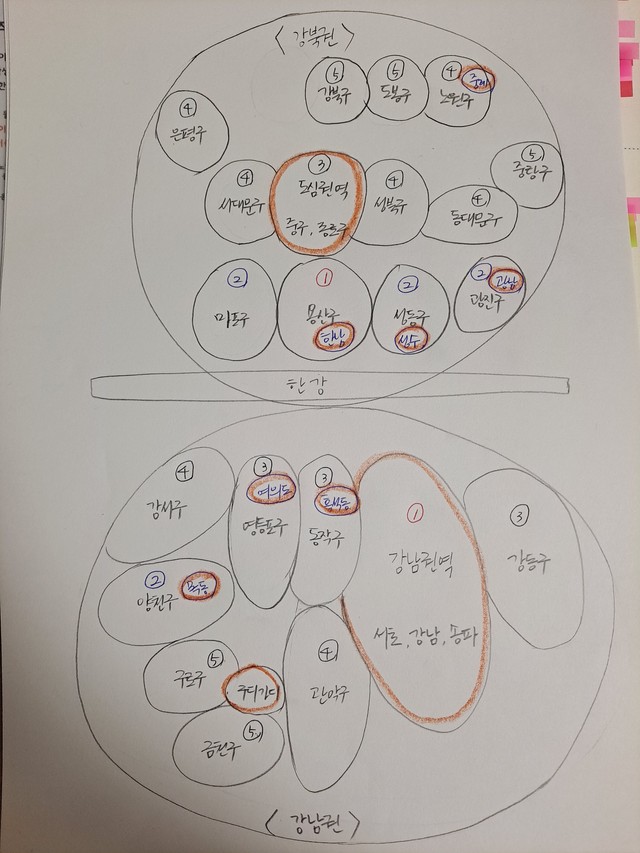 <강북권>
⑤
강북구
⑤
도봉구
④ 중계
노원구
④
은평구
⑤
중랑구
④
서대문구
③
도심권역
중구, 종로구
④
성북구
④
동대문구
②
마포구
①
용산구
한남
②
성동구
성수
② 광남
광진구
한강
④
강서구
③
여의도
영등포구
③
흑석동
동작구
①
강남권역
서초, 강남, 송파
③
강동구
② 목동
양천구
⑤
구로구
구디가디
④
관악구
⑤
금천구
<강남권>